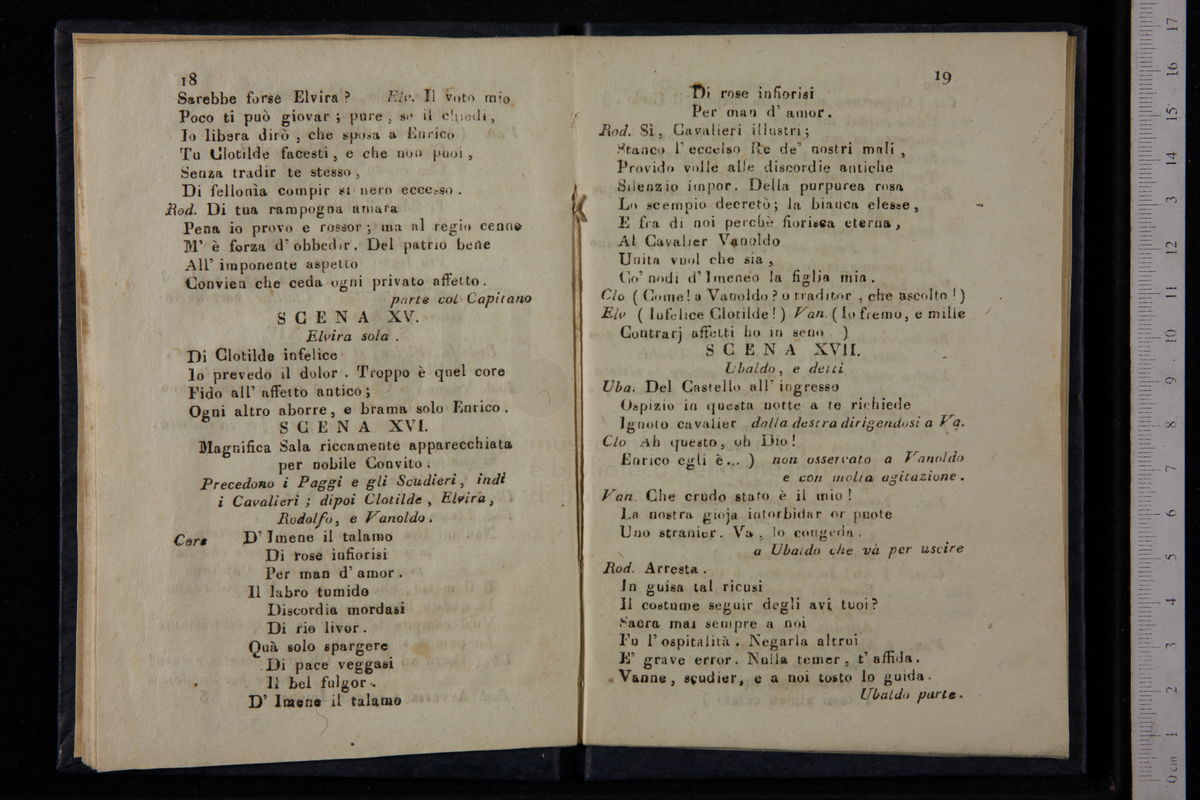 18
Sarebbe forse Elvira ? Elv. Il voto mio
Poco ti può giovar ; pure , se il chiedi ,
Io libera dirò , che sposa a Enrico
Tu Clotilde facesti , e che non puoi ,
Senza tradir te stesso ,
Di fellonìa compir sì nero eccesso .
Rod. Di tua rampogna amara
Pena io provo e rossor ; ma al regio cenno
M' è forza d' obbedir . Del patrio bene
All' imponente aspetto
Convien che ceda ogni privato affetto .
parte col Capitano
SCENA XV.
Elvira sola .
Di Clotilde infelice
Io prevedo il dolor . Troppo è quel core
Fido all' affetto antico ;
Ogni altro aborre , e brama solo Enrico .
SCENA XVI.
Magnifica Sala riccamente apparecchiata
per nobile Convito .
Precedono i Paggi e gli Scudieri , indi
i Cavalieri ; dipoi Clotilde , Elvira ,
Rodolfo , e Vanoldo .
Coro D' Imene il talamo
Di rose infiorisi
Per man d' amor .
Il labro tumido
Discordia mordasi
Di rio livor .
Quà solo spargere
Di pace veggasi
Il bel fulgor .
D' Imene il talamo
19
Di rose infiorisi
Per man d' amor .
Rod. Sì , Cavalieri illustri ;
Stanco l' eccelso Re de' nostri mali ,
Provido volle alle discordie antiche
Silenzio impor . Della purpurea rosa
Lo scempio decretò ; la bianca elesse ,
E fra di noi perchè fiorisca eterna ,
Al Cavalier Vanoldo
Unita vuol che sia ,
Co' nodi d' Imenéo la figlia mia .
Clo ( Come ! a Vanoldo ? o traditor , che ascolto ! )
Elv ( Infelice Clotilde ! ) Van. ( Io fremo , e mille
Contrarj affetti ho in seno )
SCENA XVII.
Ubaldo , e detti
Uba. Del Castello all' ingresso
Ospizio in questa notte a te richiede
Ignoto cavalier dalla destra dirigendosi a Va.
Clo Ah questo , oh Dio !
Enrico egli è ... ) non osservato a Vanoldo
e con molta agitazione .
Van. Che crudo stato è il mio !
La nostra gioja intorbidar or puote
Uno stranier . Va , lo congeda .
a Ubaldo che và per uscire
Rod. Arresta .
In guisa tal ricusi
Il costume seguir degli avi tuoi ?
Sacra mai sempre a noi
Fu l' ospitalità . Negarla altrui
E' grave error . Nulla temer , t' affida .
Vanne , scudier , e a noi tosto lo guida .
Ubaldo parte .
0 cm 1 2 3 4 5 6 7 8 9 10 11 12 13 14 15 16 17